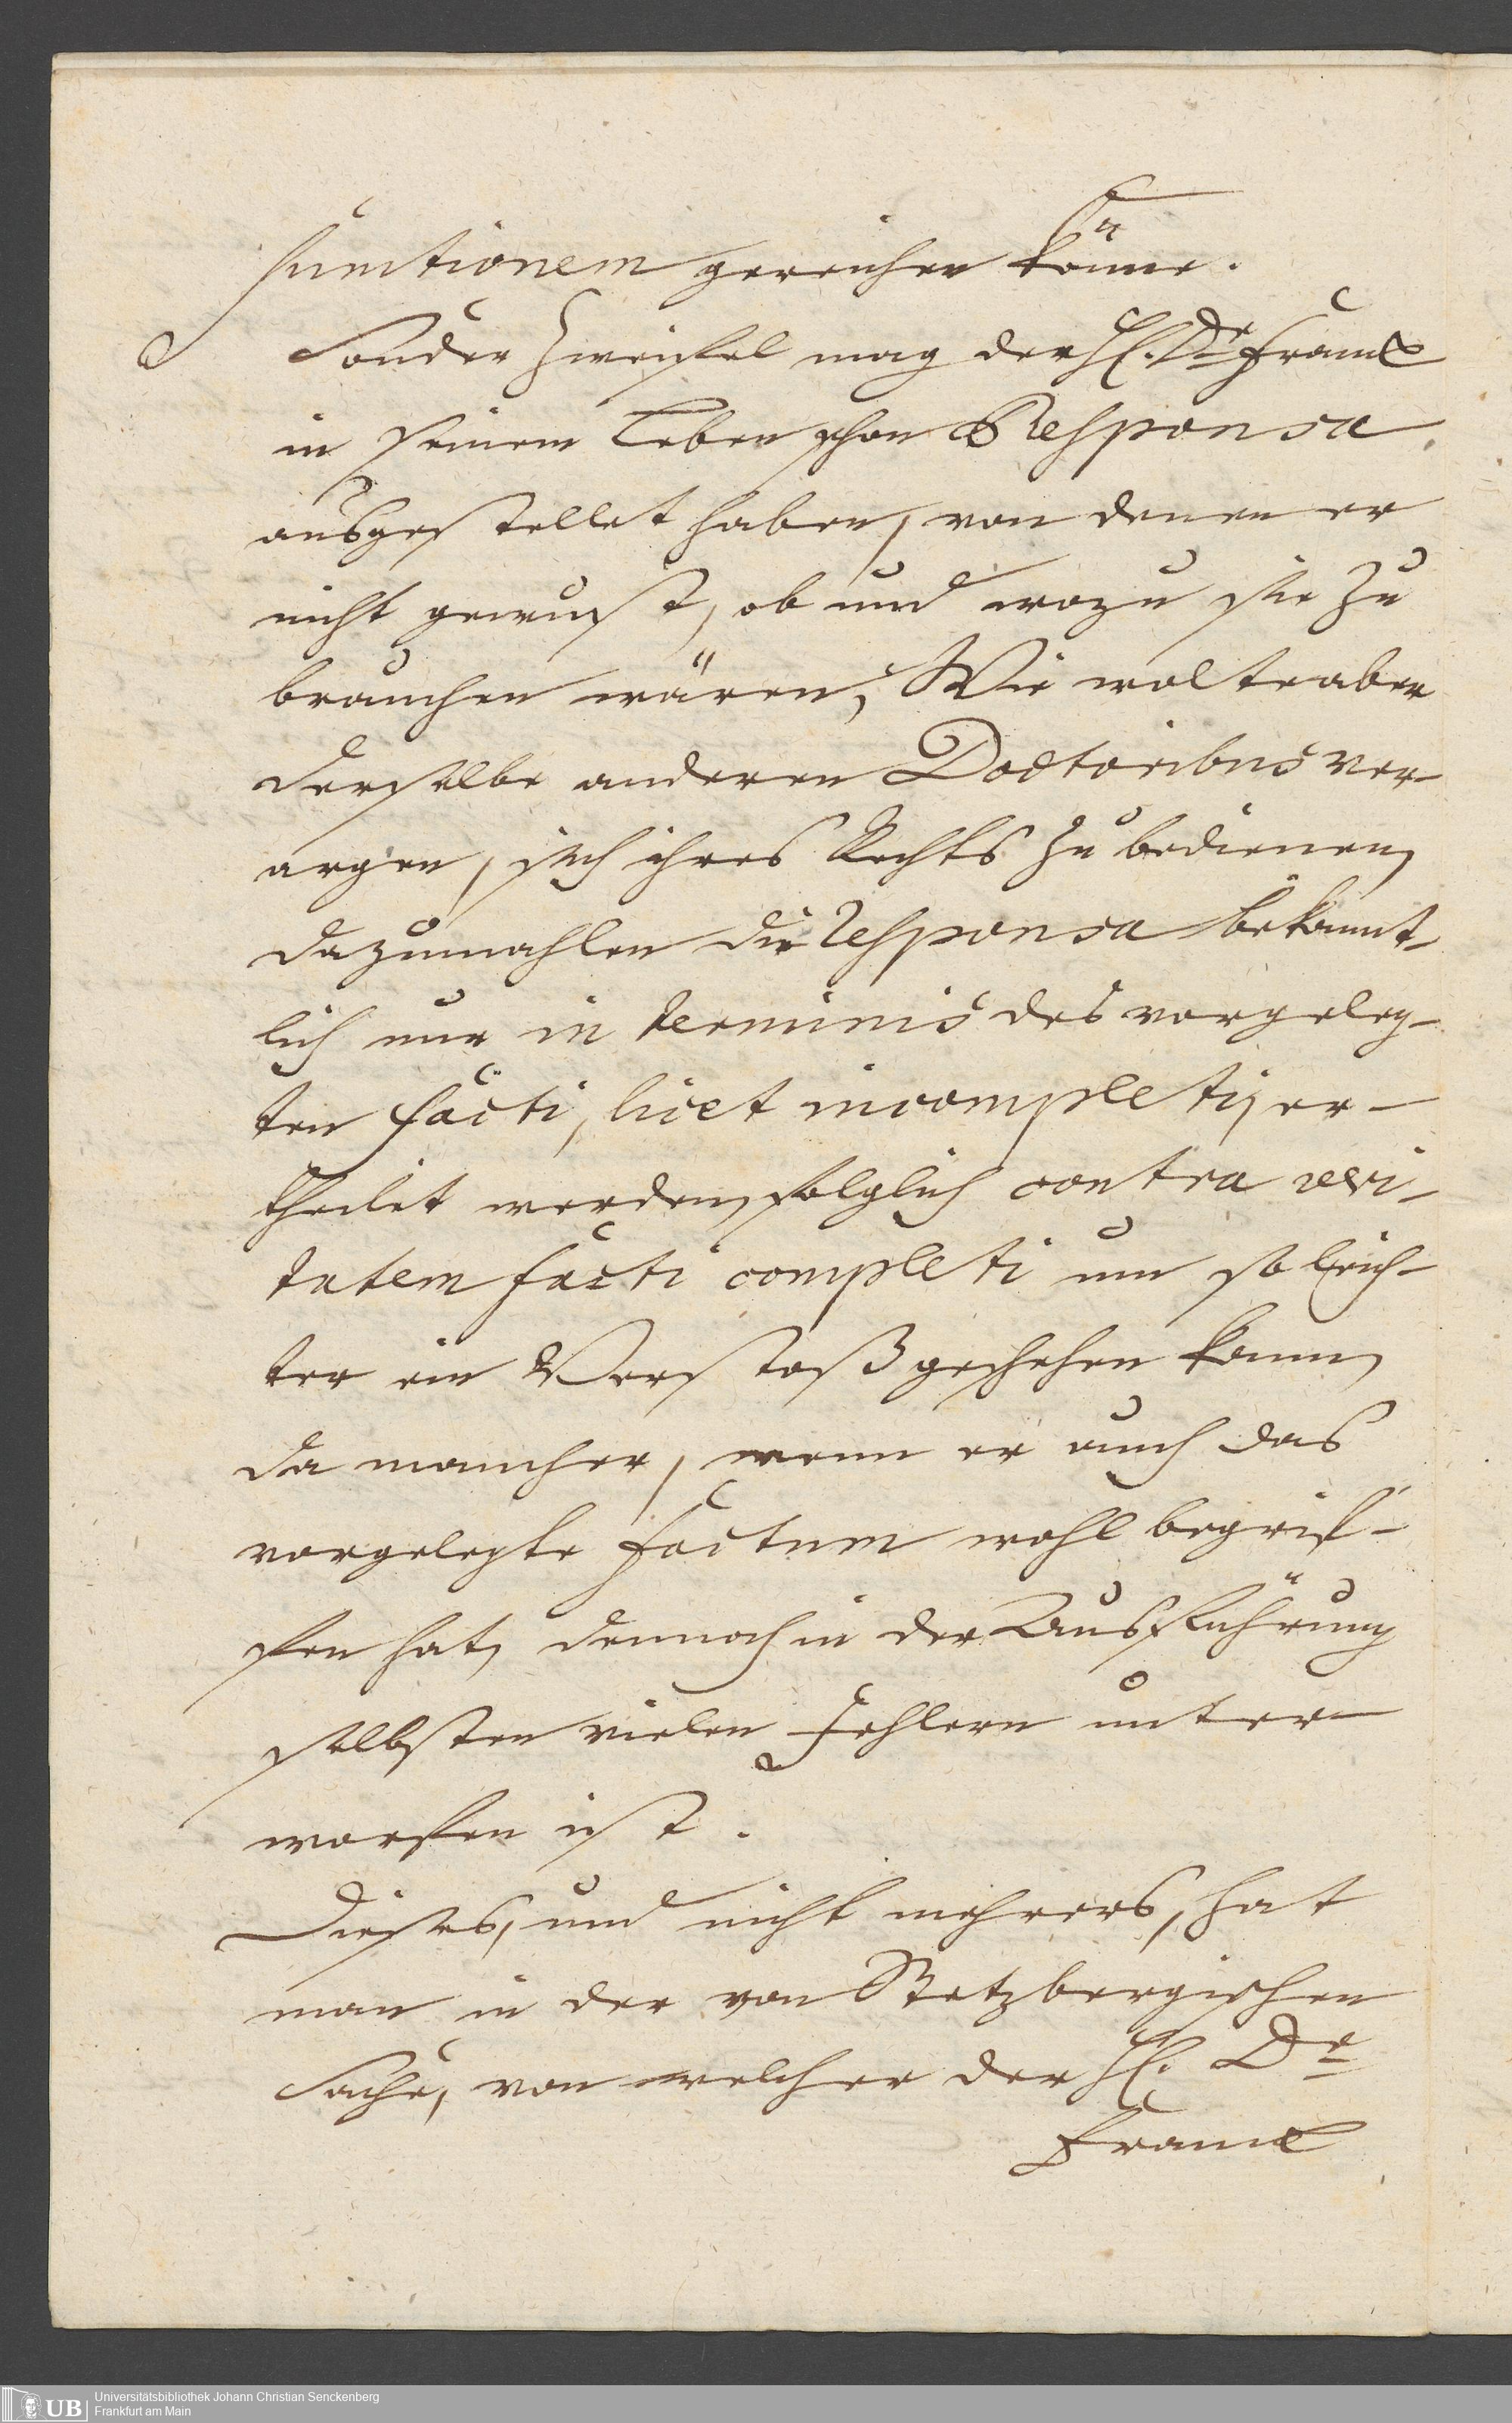 sumtionem gereichen könne.
Sonder Zweifel mag der H. Dr Franck
in seinem Leben schon Responsa
ausgestellet haben, von denen er
nicht gewust, ob und wozu sie zu
brauchen wären, Wie wolte aber
derselbe anderen Doctoribus ver-
argen, sich ihres Rechts zu bedienen,
dazumahlen die Responsa bekannt-
lich nur in terminis des vorgeleg-
ten facti, licet incompleti, er-
theilet werden, folglich contra veri-
tatem facti completi um so leich-
ter ein Verstoß geschehen kann,
da mancher, wenn er auch das
vorgelegte factum wohl begrif-
fen hat, dennoch in der Ausführung
selbsten vielen Fehlern unter-
worfen ist.
Dieses, und nicht mehrers, hat
man in der von Retzbergischen
Sache, von welcher der H. Dr
Franck
UB
Universitätsbibliothek Johann Christian Senckenberg
Frankfurt am Main